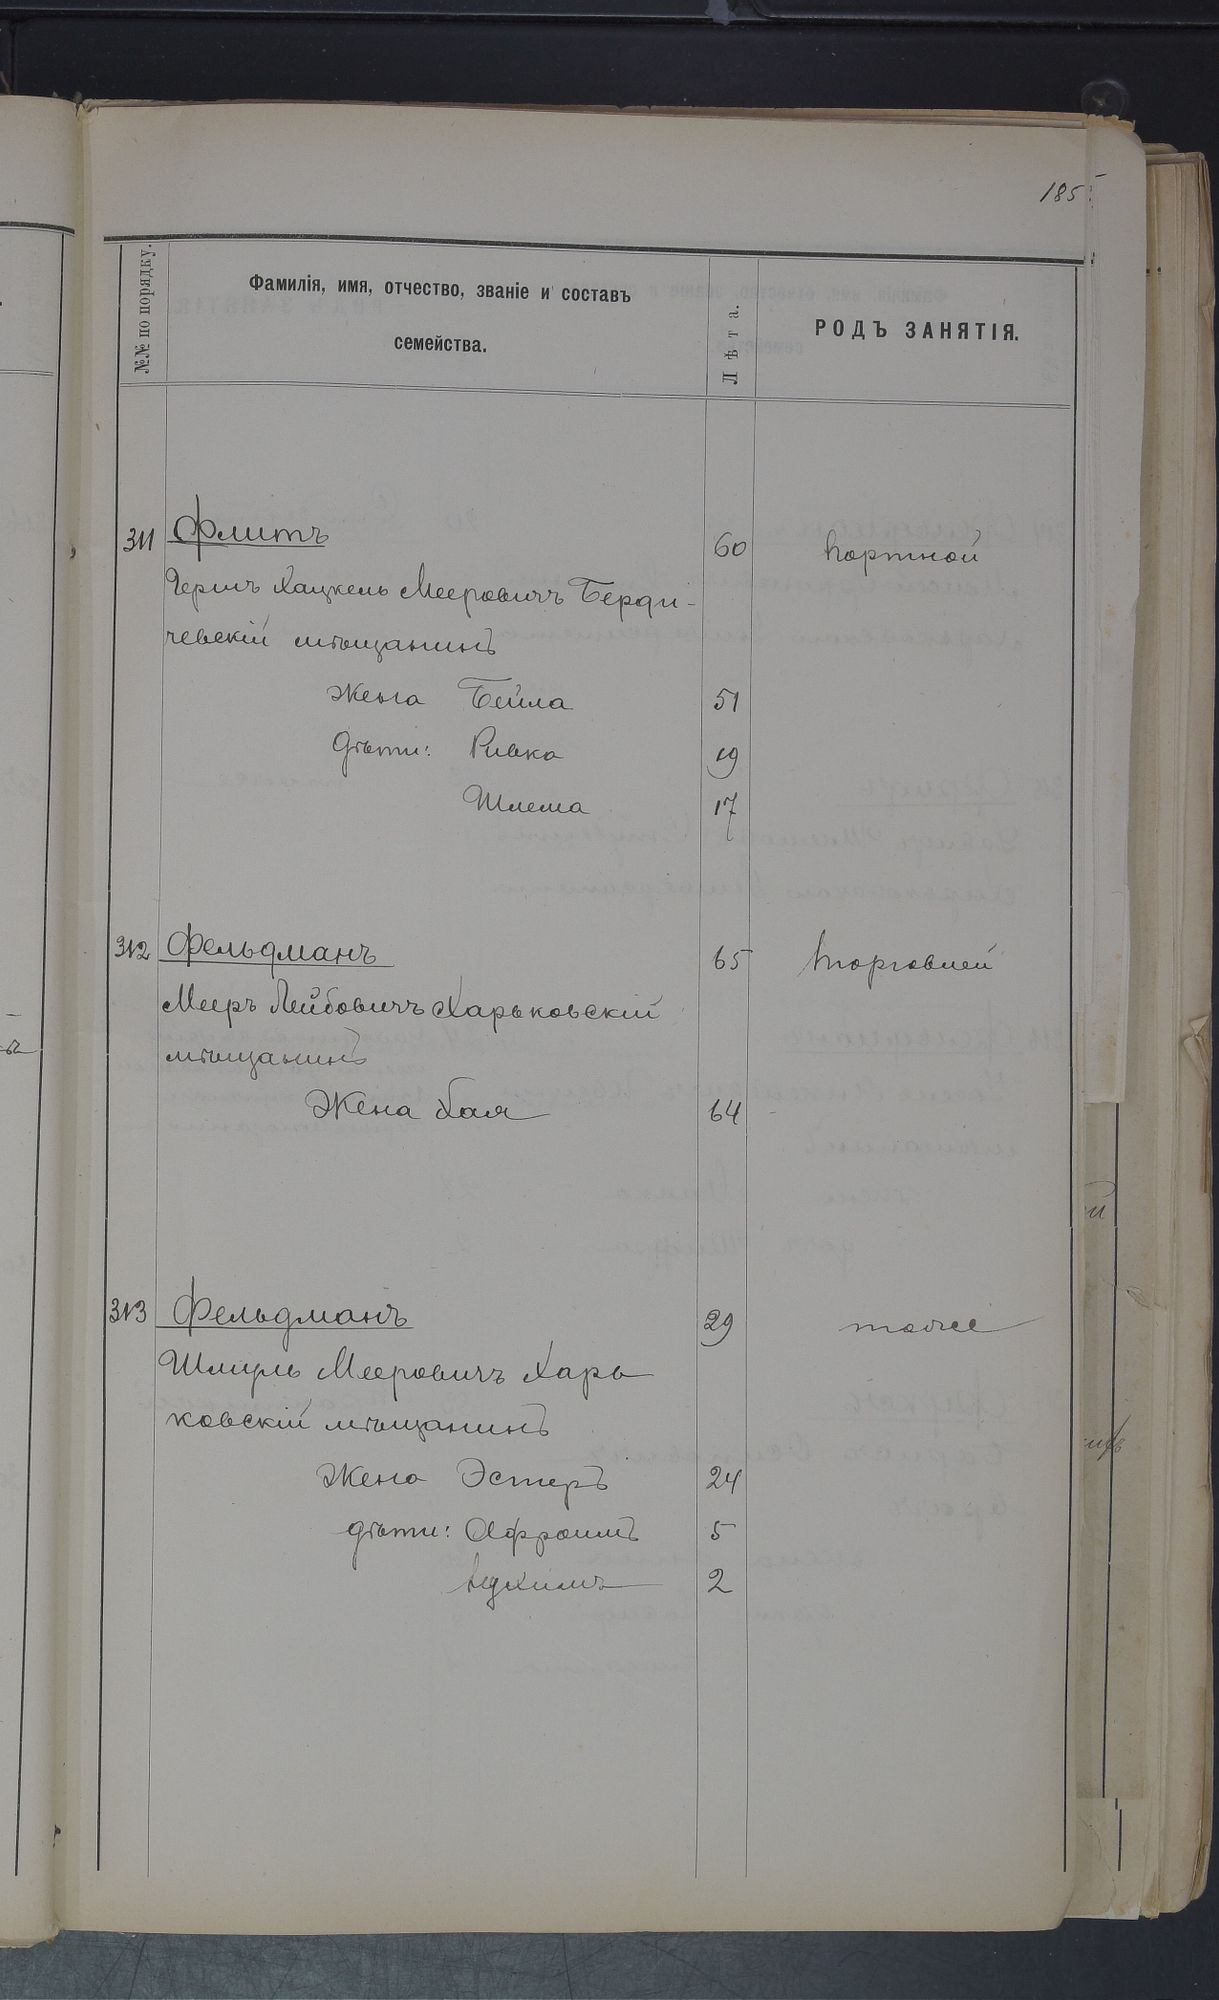 185
№№ по порядку.
Фамилія, имя, отчество, званіе и составъ
семейства.
Лѣта.
РОДЪ ЗАНЯТІЯ.
311 Флитъ 60 портной
Гершъ Хацкель Мееровичъ Берди-
чевскій мѣщанинъ
Жена Бейла 51
Дѣти: Ривка 19
Шлема 17
312 Фельдманъ 65 торговлей
Мееръ Лейбовичъ Харьковскій
мѣщанинъ
Жена Хая 64
313 Фельдманъ 29 тоже
Шмуль Мееровичъ Харь
ковскій мѣщанинъ
Жена Эстеръ 24
дѣти: Афроимъ 5
2